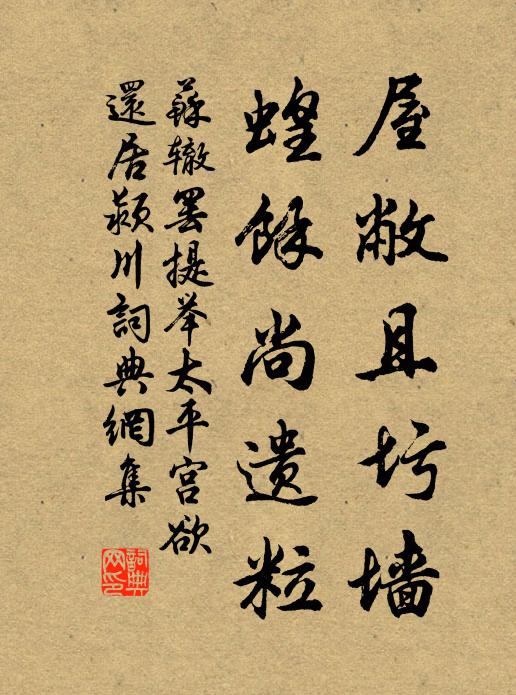 屋敝且圬墙
蝗餘尚遗粒
蘇辙罢提举太平宫欲
還居颍川詞典網集
詞典網印